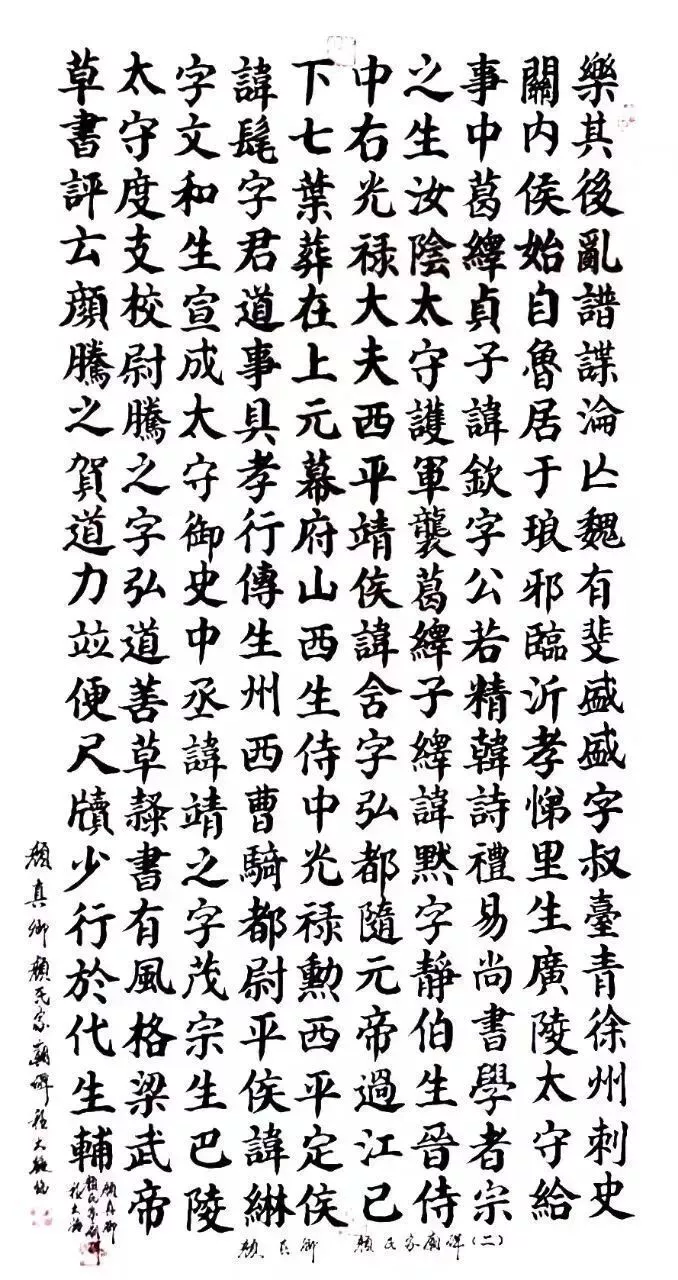 樂其後亂譜諜淪亾魏有斐盛盛字叔臺青徐州刺史
關内侯始自魯居于琅邪臨沂孝悌里生廣陵太守給
事中葛繹貞子諱欽字公若精韓詩禮易尚書學者宗
之生汝陰太守護軍襲葛繹子繹諱默字靜伯生晉侍
中右光禄大夫西平靖侯諱含字弘都隨元帝過江已
下七葉葬在上元幕府山西生侍中光禄勲西平定侯
諱髦字君道事具孝行傳生州西曹騎都尉平侯諱綝
字文和生宣成太守御史中丞諱靖之字茂宗生巴陵
太守度支校尉騰之字弘道善草隸書有風格梁武帝
草書評云顔騰之賀道力竝便尺牘少行於代生輔
顏真卿顏氏家廟碑
顏真卿
顏氏家廟碑
顏真卿 顏氏家廟碑(二)